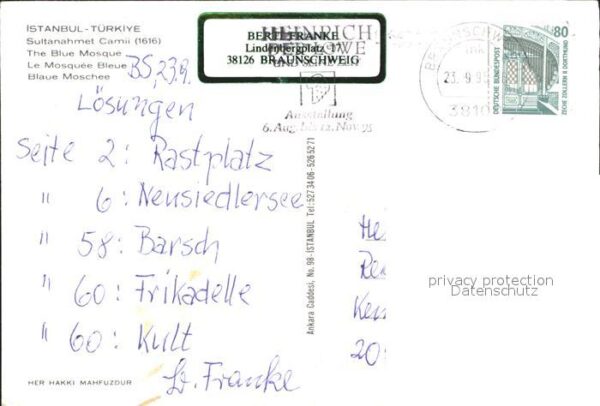 ISTANBUL - TÜRKİYE
Sultanahmet Camii (1616)
The Blue Mosque
Le Mosquée Bleue
Blaue Moschee
BERT FRANKE
Lindenbergplatz 17
38126 BRAUNSCHWEIG
HEINRICH
UND SEINE
Ausstellung
6. Aug. bis 12. Nov. 95
BRAUNSCHWEIG
23. 9. 95
3810
80
DEUTSCHE BUNDESPOST
ZECHE ZOLLERN II DORTMUND
BS, 23.9.
Lösungen
Seite 2: Rastplatz
" 6: Neusiedlersee
" 58: Barsch
" 60: Frikadelle
" 60: Kult
B. Franke
Ankara Caddesi, No. 98-İSTANBUL Tel: 5273406-5265271
HER HAKKI MAHFUZDUR
privacy protection
Datenschutz
20